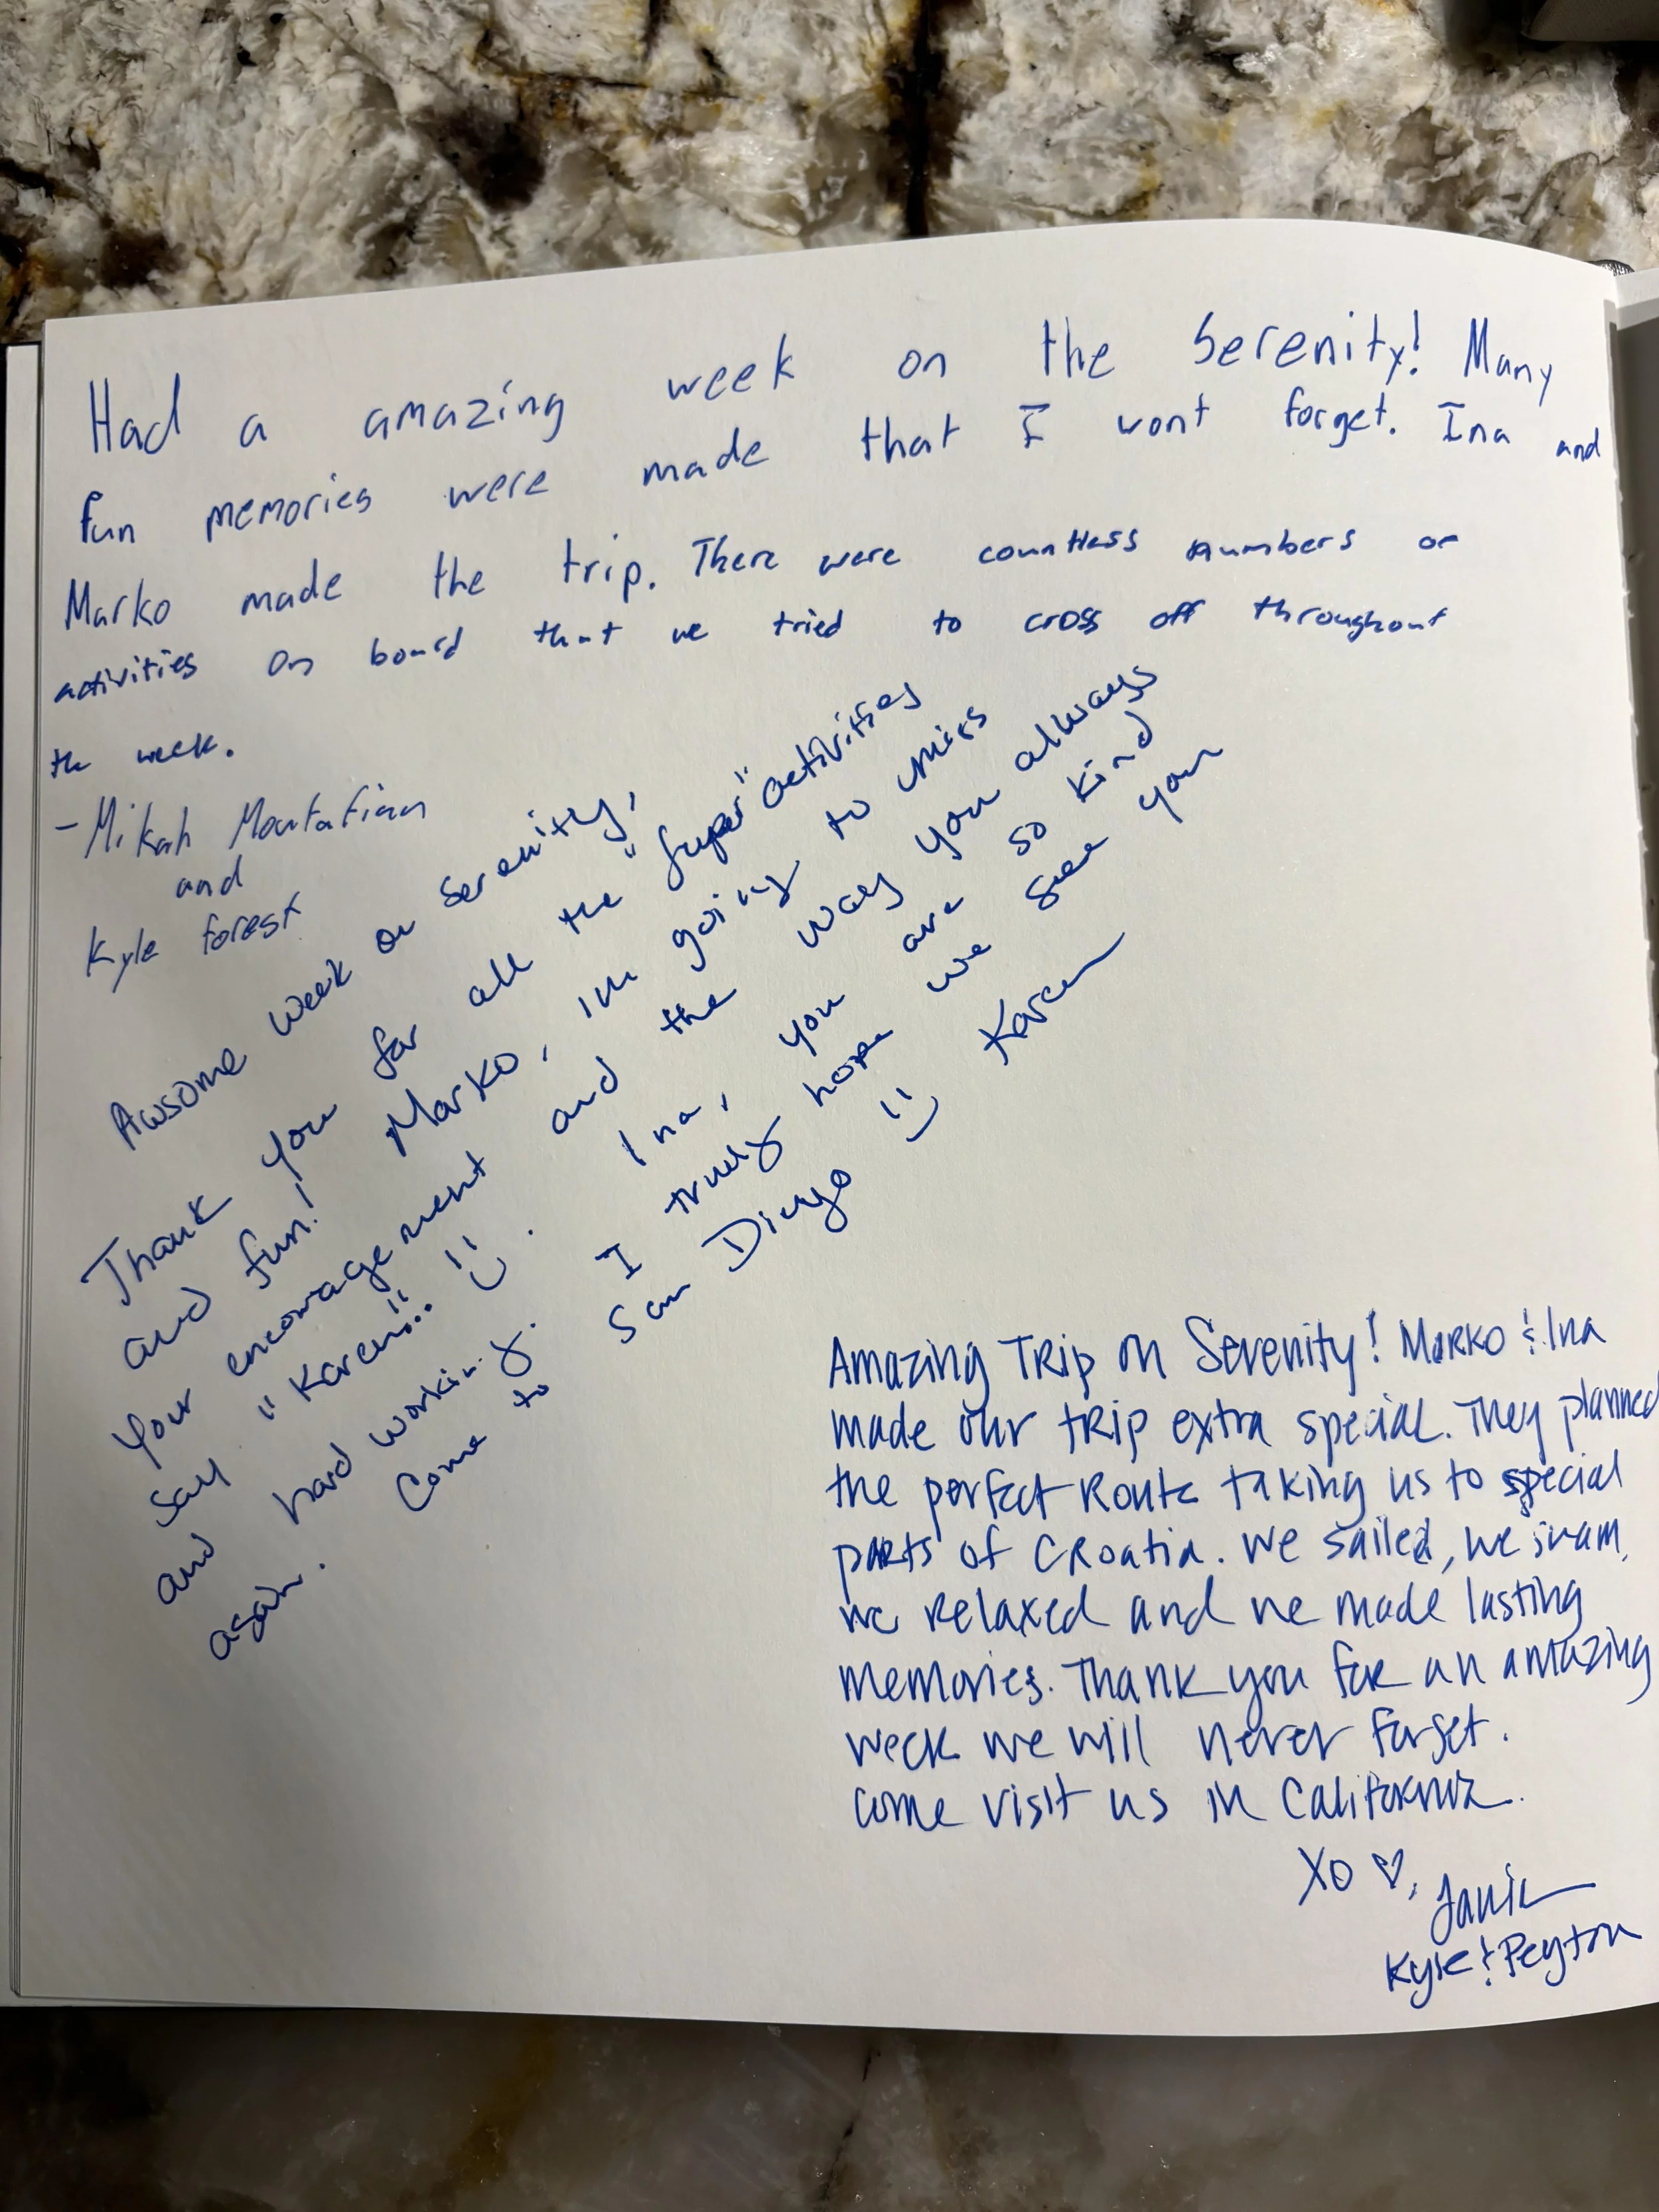 Had a amazing week on the Serenity! Many
fun memories were made that I wont forget. Ina and
Marko made the trip. There were countless numbers of
activities on board that we tried to cross off throughout
the week.
- Mikah
and
Kyle Forest
Awsome week on Serenity,
Thank you for all the "super" activities
and fun! Marko, im going to miss
your encouragement and the way you always
say "Karen!!" Ina, you are so kind
and hard working. I truly hope we see you
again. Come to San Diego Karen
Amazing Trip on Serenity! Marko & Ina
made our trip extra special. They planned
the perfect Route taking us to special
parts of Croatia. We sailed, we swam,
we relaxed and we made lasting
memories. Thank you for an amazing
week we will never forget.
come visit us in California.
XO ♡,
Kyle & Peyton